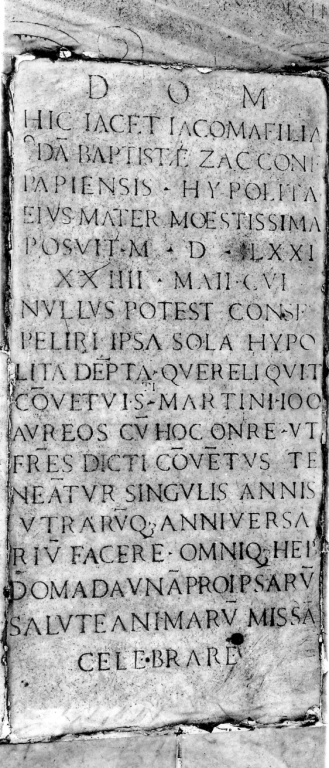 D O M
HIC IACET IACOMA FILIA
QDĀ BAPTISTĒ ZACCONI
PAPIENSIS · HYPOLITA
EIVS MATER MOESTISSIMA
POSVIT · M · D · LXXI
XXIIII · MAII · CVI
NVLLVS POTEST CONSE
PELIRI IPSA SOLA HYPO
LITA DĒPTA · QVE RELIQVIT
CŌVETVI · S · MARTINI · 100
AVREOS CV̄ HOC ONRE · VT
FRĒS DICTI CŌVĒTVS TE
NEĀTVR SINGVLIS ANNIS
VTRARVQ; ANNIVERSA
RIV̄ FACERE · OMNIQ; HEB
DOMADA VNĀ PRO IPSARV̄
SALVTE ANIMARV̄ MISSĀ
CELEBRARE